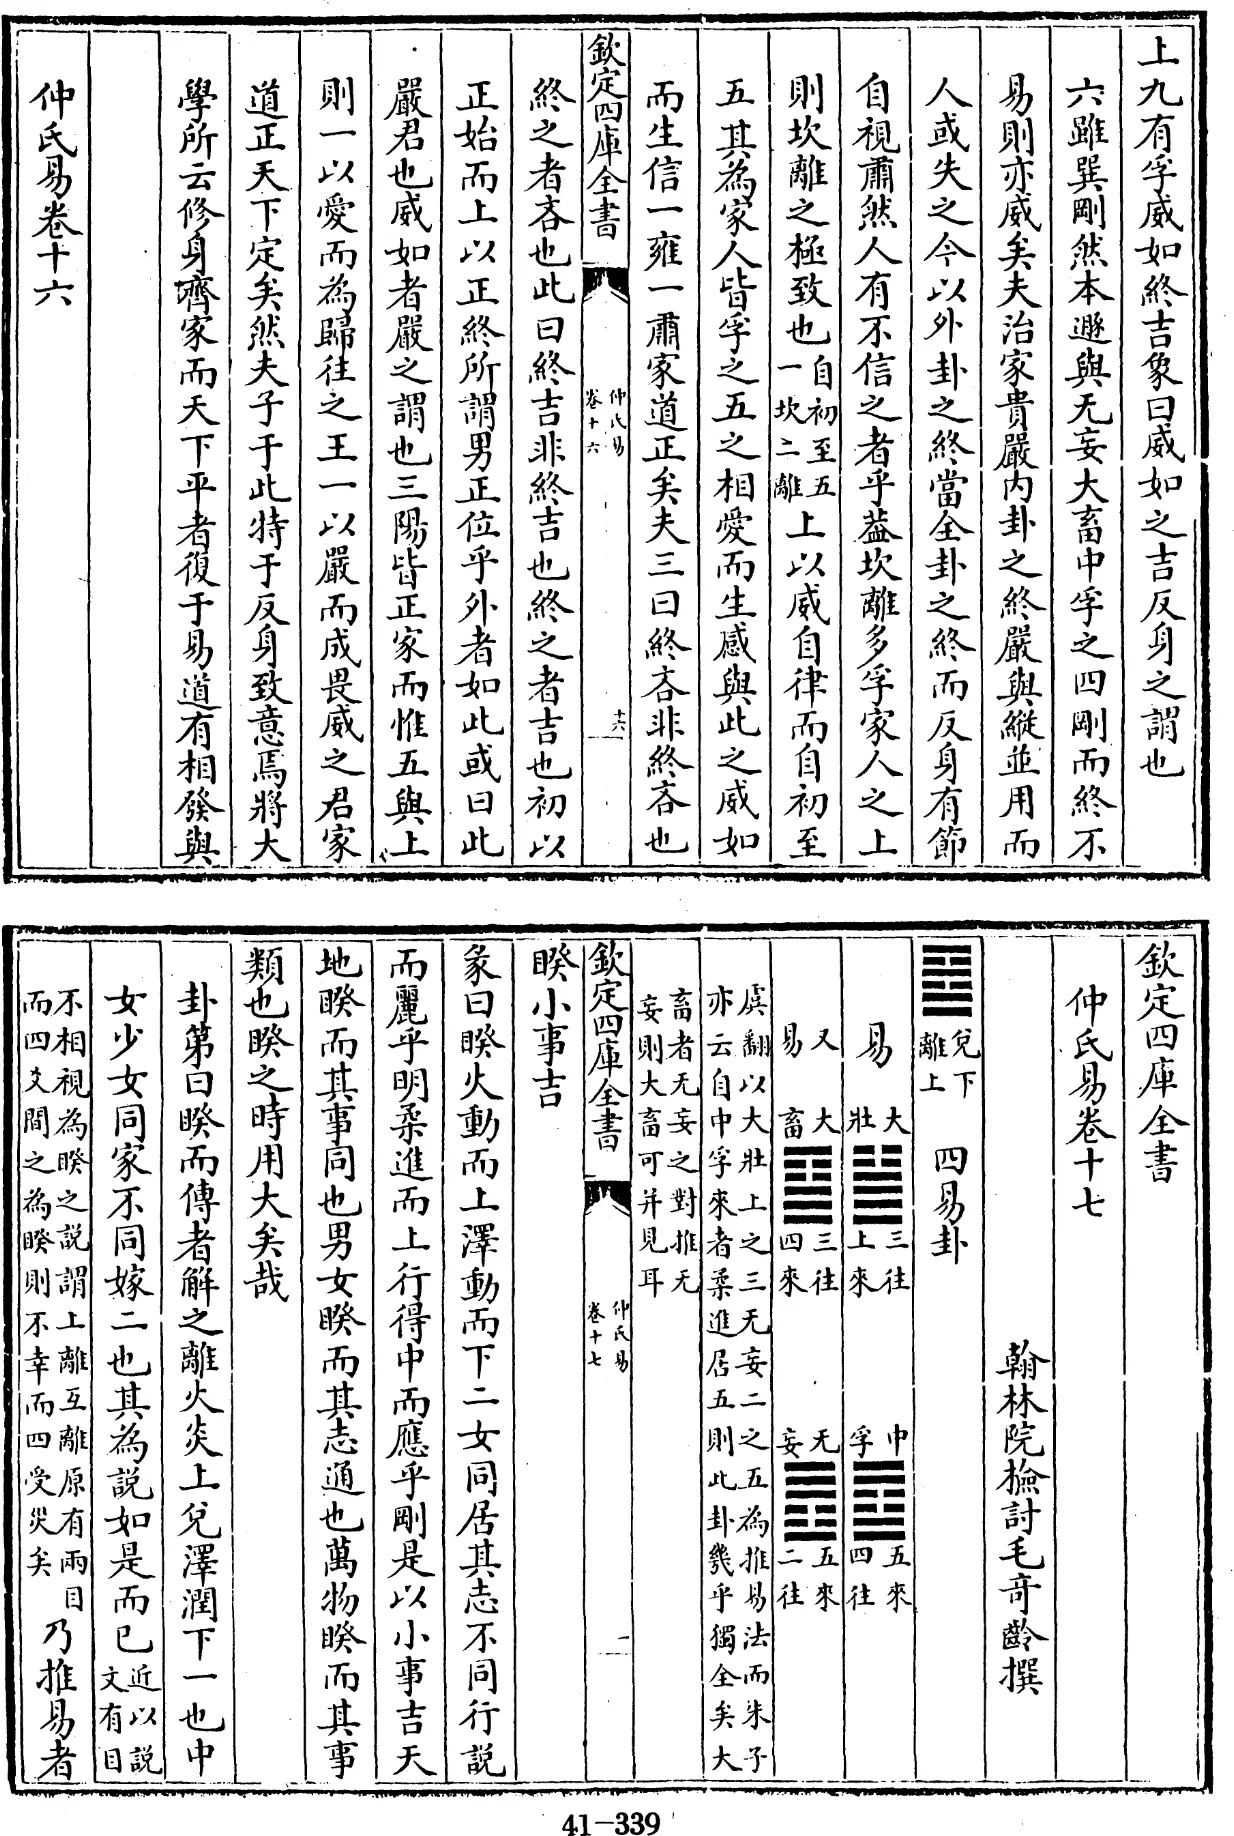 上九有孚威如終吉象曰威如之吉反身之謂也
六雖巽剛然本遯與无妄大畜中孚之四剛而終不
易則亦威矣夫治家貴嚴内卦之終嚴與縱並用而
人或失之今以外卦之終當全卦之終而反身有節
自視肅然人有不信之者乎葢坎離多孚家人之上
則坎離之極致也自初至五一坎二離上以威自律而自初至
五其為家人皆孚之五之相愛而生感與此之威如
而生信一雍一肅家道正矣夫三曰終吝非終吝也
欽定四庫全書
仲氏易
卷十六
十六
終之者吝也此曰終吉非終吉也終之者吉也初以
正始而上以正終所謂男正位乎外者如此或曰此
嚴君也威如者嚴之謂也三陽皆正家而惟五與上
則一以愛而為歸往之王一以嚴而成畏威之君家
道正天下定矣然夫子于此特于反身致意焉將大
學所云修身齊家而天下平者復于易道有相發與
仲氏易卷十六
欽定四庫全書
仲氏易卷十七
翰林院檢討毛奇齡撰
兌下
離上
四易卦
易
大壯
三往
上來
中孚
五來
四往
又易
大畜
三往
四來
无妄
五來
二往
虞翻以大壯上之三无妄二之五為推易法而朱子
亦云自中孚來者柔進居五則此卦幾乎獨全矣大
畜者无妄之對推无
妄則大畜可并見耳
欽定四庫全書
仲氏易
卷十七
一
睽小事吉
彖曰睽火動而上澤動而下二女同居其志不同行説
而麗乎明柔進而上行得中而應乎剛是以小事吉天
地睽而其事同也男女睽而其志通也萬物睽而其事
類也睽之時用大矣哉
卦第曰睽而傳者解之離火炎上兌澤潤下一也中
女少女同家不同嫁二也其為説如是而已近以説文有目
不相視為睽之説謂上離互離原有兩目而四爻間之為睽則不幸而四受災矣乃推易者
41-339